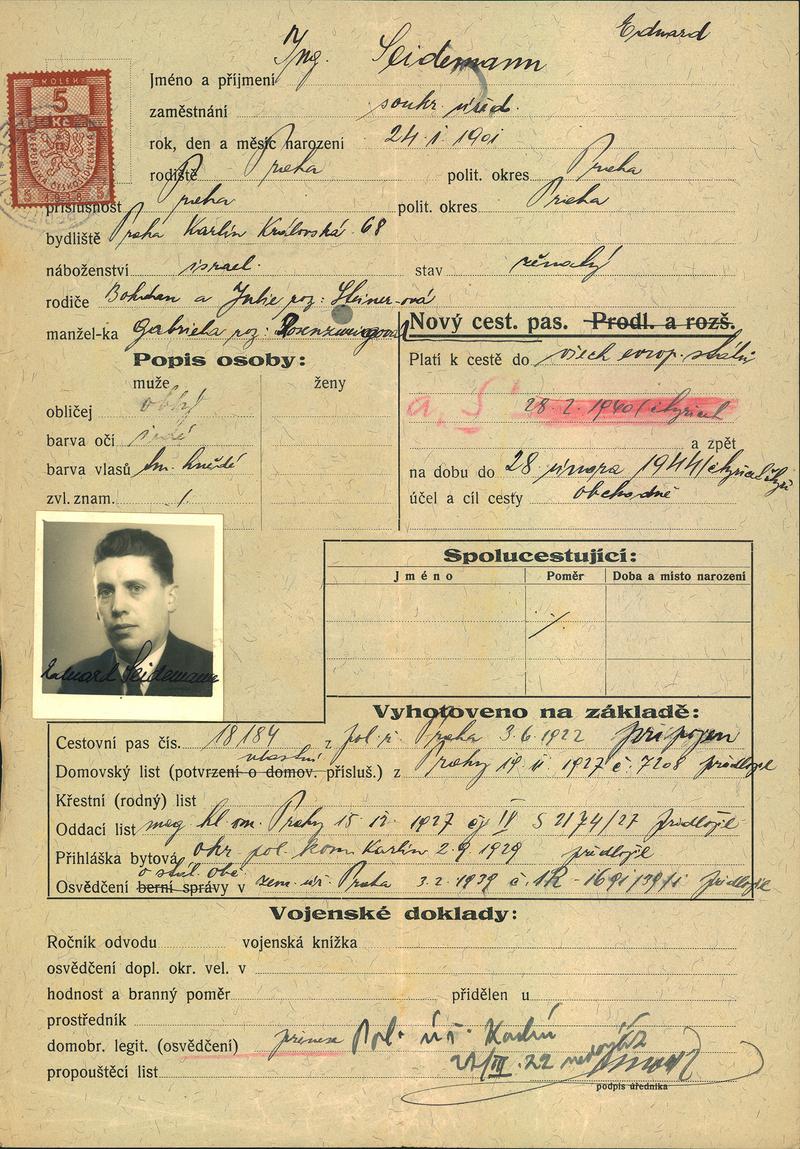 Eduard
Ing. Seidemann
Jméno a příjmení
KOLEK
5
Kč
REPUBLIKA ČESKOSLOVENSKÁ
5 1938 5
zaměstnání soukr. úřed.
rok, den a měsíc narození 24. I. 1901
rodiště Praha polit. okres Praha
příslušnost Praha polit. okres Praha
bydliště Praha Karlín Královská 68
náboženství israel. stav ženatý
rodiče Bohdan a Julie roz: Steiner-ová
manžel-ka Gabriela roz: Rosenzweigová
Nový cest. pas. Prodl. a rozš.
Popis osoby:
Platí k cestě do všech evrop. států
muže ženy
obličej oblý
a. S 28. 2. 1940/čtyřicet
barva očí šedé
a zpět
barva vlasů tm. hnědé
na dobu do 28 února 1944/čtyřicetčtyři
zvl. znam. /
účel a cíl cesty obchodně
Eduard Seidemann
Spolucestující:
Jméno Poměr Doba a místo narození
/
Vyhotoveno na základě:
Cestovní pas čís. 18184 z pol. ř. Praha 3.6.1922 připojen
vlastní
Domovský list (potvrzení o domov. přísluš.) z Prahy 19 II 1927 č. 7208 předložil
Křestní (rodný) list
Oddací list mag. hl. m. Prahy 15 12 1927 čj IV S 2174/27 předložil
Přihláška bytová okr. pol. kom. Karlín 2.9.1929 předložil
o stát. obč.
Osvědčení berní správy v zem. úř. Praha 3.2.1939 č. 1R - 1691/39/1 předložil
Vojenské doklady:
Ročník odvodu vojenská knížka
osvědčení dopl. okr. vel. v
hodnost a branný poměr přidělen u
prostředník
domobr. legit. (osvědčení) Pol. úř.
propouštěcí list
podpis úředníka